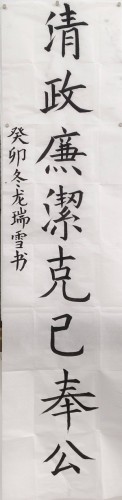 清政廉潔克己奉公
癸卯冬龙瑞雪书